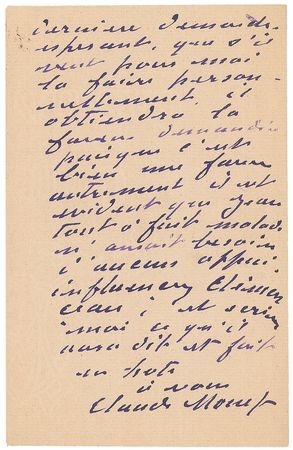 dernière demande,
espérant, que s'il
veut pour moi
la faire person-
nellement, il
obtiendra la
faveur demandée
puisque c'est
bien une faveur
autrement il est
évident que Jean
tout à fait malade
n'aurait besoin
d'aucun appui
influence, Clémen
ceau, et écrivez
moi ce qu'il
aura dit et fait
en hâte
à vous
Claude Monet